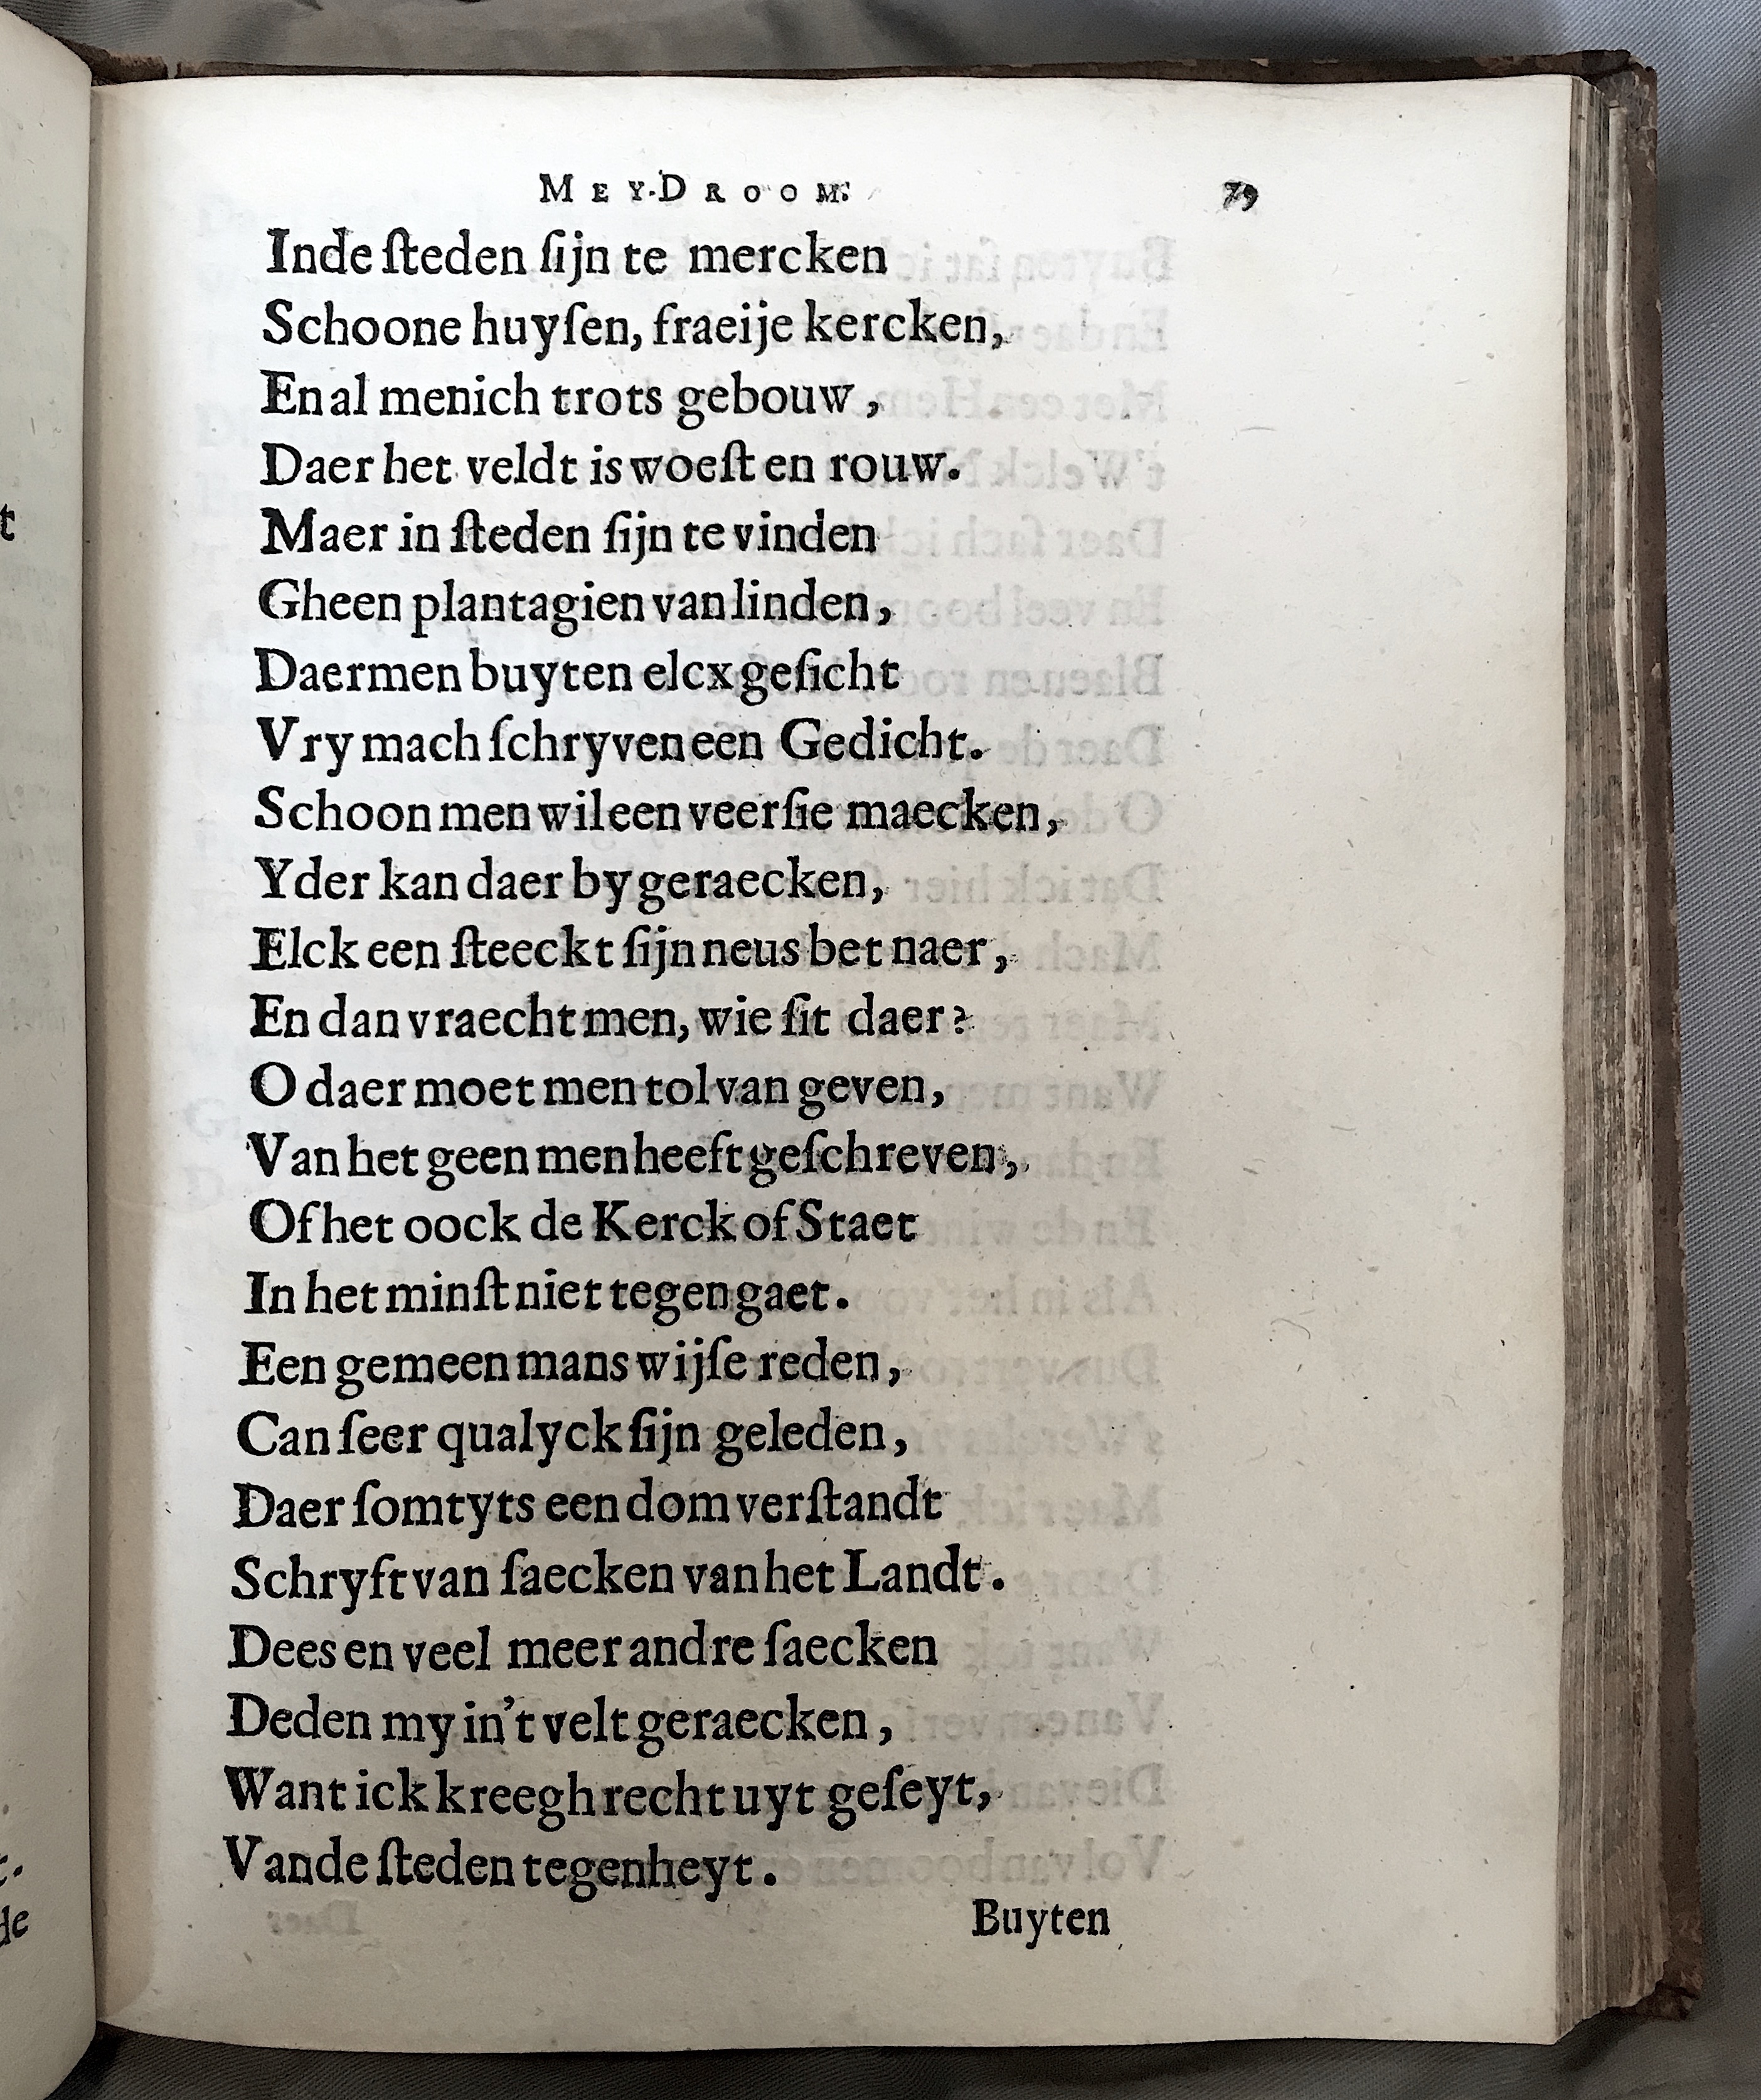 MEY-DROOM. 79
Inde ſteden ſijn te mercken
Schoone huyſen, fraeije kercken,
En al menich trots gebouw,
Daer het veldt is woeſt en rouw.
Maer in ſteden ſijn te vinden
Gheen plantagien van linden,
Daermen buyten elcx geſicht
Vry mach ſchryven een Gedicht.
Schoon men wil een veerſie maecken,
Yder kan daer by geraecken,
Elck een ſteeckt ſijn neus bet naer,
En dan vraecht men, wie ſit daer?
O daer moet men tol van geven,
Van het geen men heeft geſchreven,
Of het oock de Kerck of Staet
In het minſt niet tegen gaet.
Een gemeen mans wijſe reden,
Can ſeer qualyck ſijn geleden,
Daer ſomtyts een dom verſtandt
Schryft van ſaecken van het Landt.
Dees en veel meer andre ſaecken
Deden my in't velt geraecken,
Want ick kreegh recht uyt geſeyt,
Vande ſteden tegenheyt.
Buyten